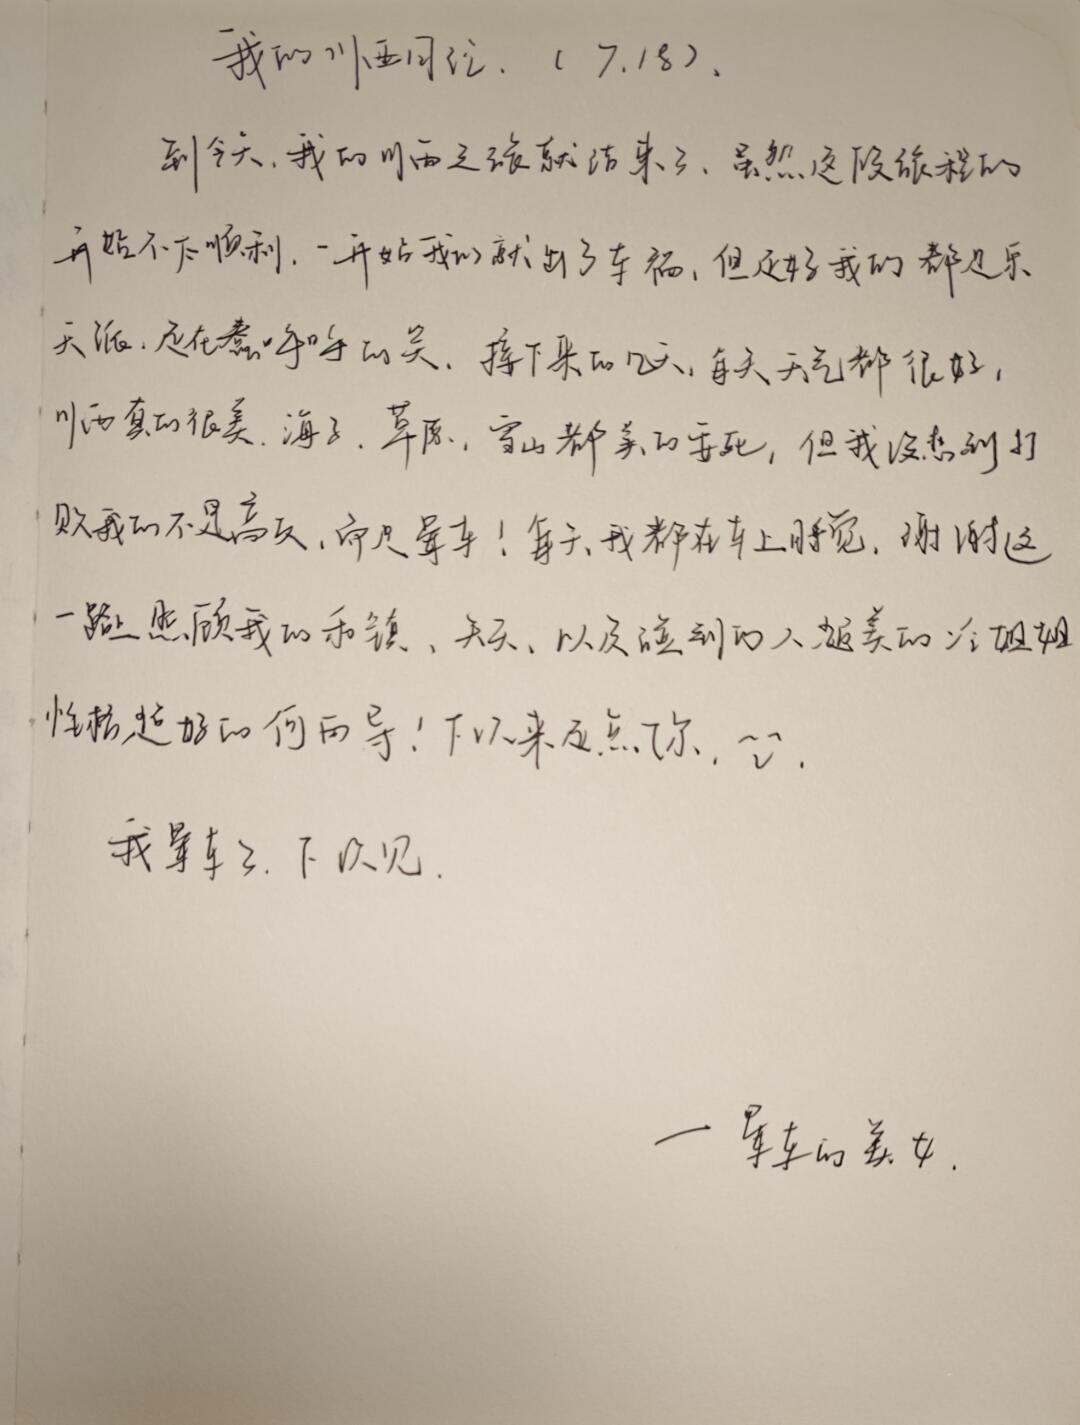 我的川西日记.(7.18).
到今天,我的川西之旅就结束了、虽然这段旅程的
开始不太顺利,一开始我们就出了车祸,但还好我们都是乐
天派,还在憨呼呼的笑、接下来的几天,每天天气都很好,
川西真的很美、海子、草原、雪山都美的要死,但我没想到打
败我的不是高反、而是晕车!每天我都在车上睡觉,谢谢这
一路上照顾我的和镇、天天、以及碰到的人超美的冷姐姐
性格超好的何向导!下次来还点你,
我晕车了、下次见.
一晕车的美女.